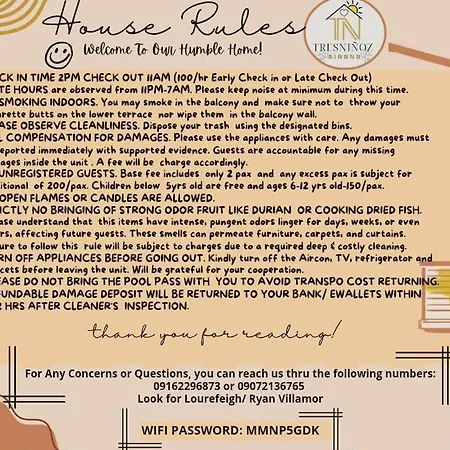 House Rules
Welcome To Our Humble Home!
TN
TRESNIÑOZ
AIRBNB
CK IN TIME 2PM CHECK OUT 11AM (100/hr Early Check in or Late Check Out)
TE HOURS are observed from 11PM-7AM. Please keep noise at minimum during this time.
SMOKING INDOORS. You may smoke in the balcony and make sure not to throw your
arette butts on the lower terrace nor wipe them in the balcony wall.
ASE OBSERVE CLEANLINESS. Dispose your trash using the designated bins.
L COMPENSATION FOR DAMAGES. Please use the appliances with care. Any damages must
eported immediately with supported evidence. Guests are accountable for any missing
ages inside the unit . A fee will be charge accordingly.
UNREGISTERED GUESTS. Base fee includes only 2 pax and any excess pax is subject for
itional of 200/pax. Children below 5yrs old are free and ages 6-12 yrs old-150/pax.
OPEN FLAMES OR CANDLES ARE ALLOWED.
ICTLY NO BRINGING OF STRONG ODOR FRUIT LIKE DURIAN OR COOKING DRIED FISH.
ase understand that this items have intense, pungent odors linger for days, weeks, or even
rs, affecting future guests. These smells can permeate furniture, carpets, and curtains.
ure to follow this rule will be subject to charges due to a required deep & costly cleaning.
RN OFF APPLIANCES BEFORE GOING OUT. Kindly turn off the Aircon, TV, refrigerator and
cets before leaving the unit. Will be grateful for your cooperation.
EASE DO NOT BRING THE POOL PASS WITH YOU TO AVOID TRANSPO COST RETURNING.
FUNDABLE DAMAGE DEPOSIT WILL BE RETURNED TO YOUR BANK/ EWALLETS WITHIN
2 HRS AFTER CLEANER'S INSPECTION.
thank you for reading!
For Any Concerns or Questions, you can reach us thru the following numbers:
09162296873 or 09072136765
Look for Lourefeigh/ Ryan Villamor
WIFI PASSWORD: MMNP5GDK